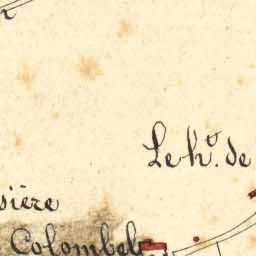 Le h.º de
sière
Colombel